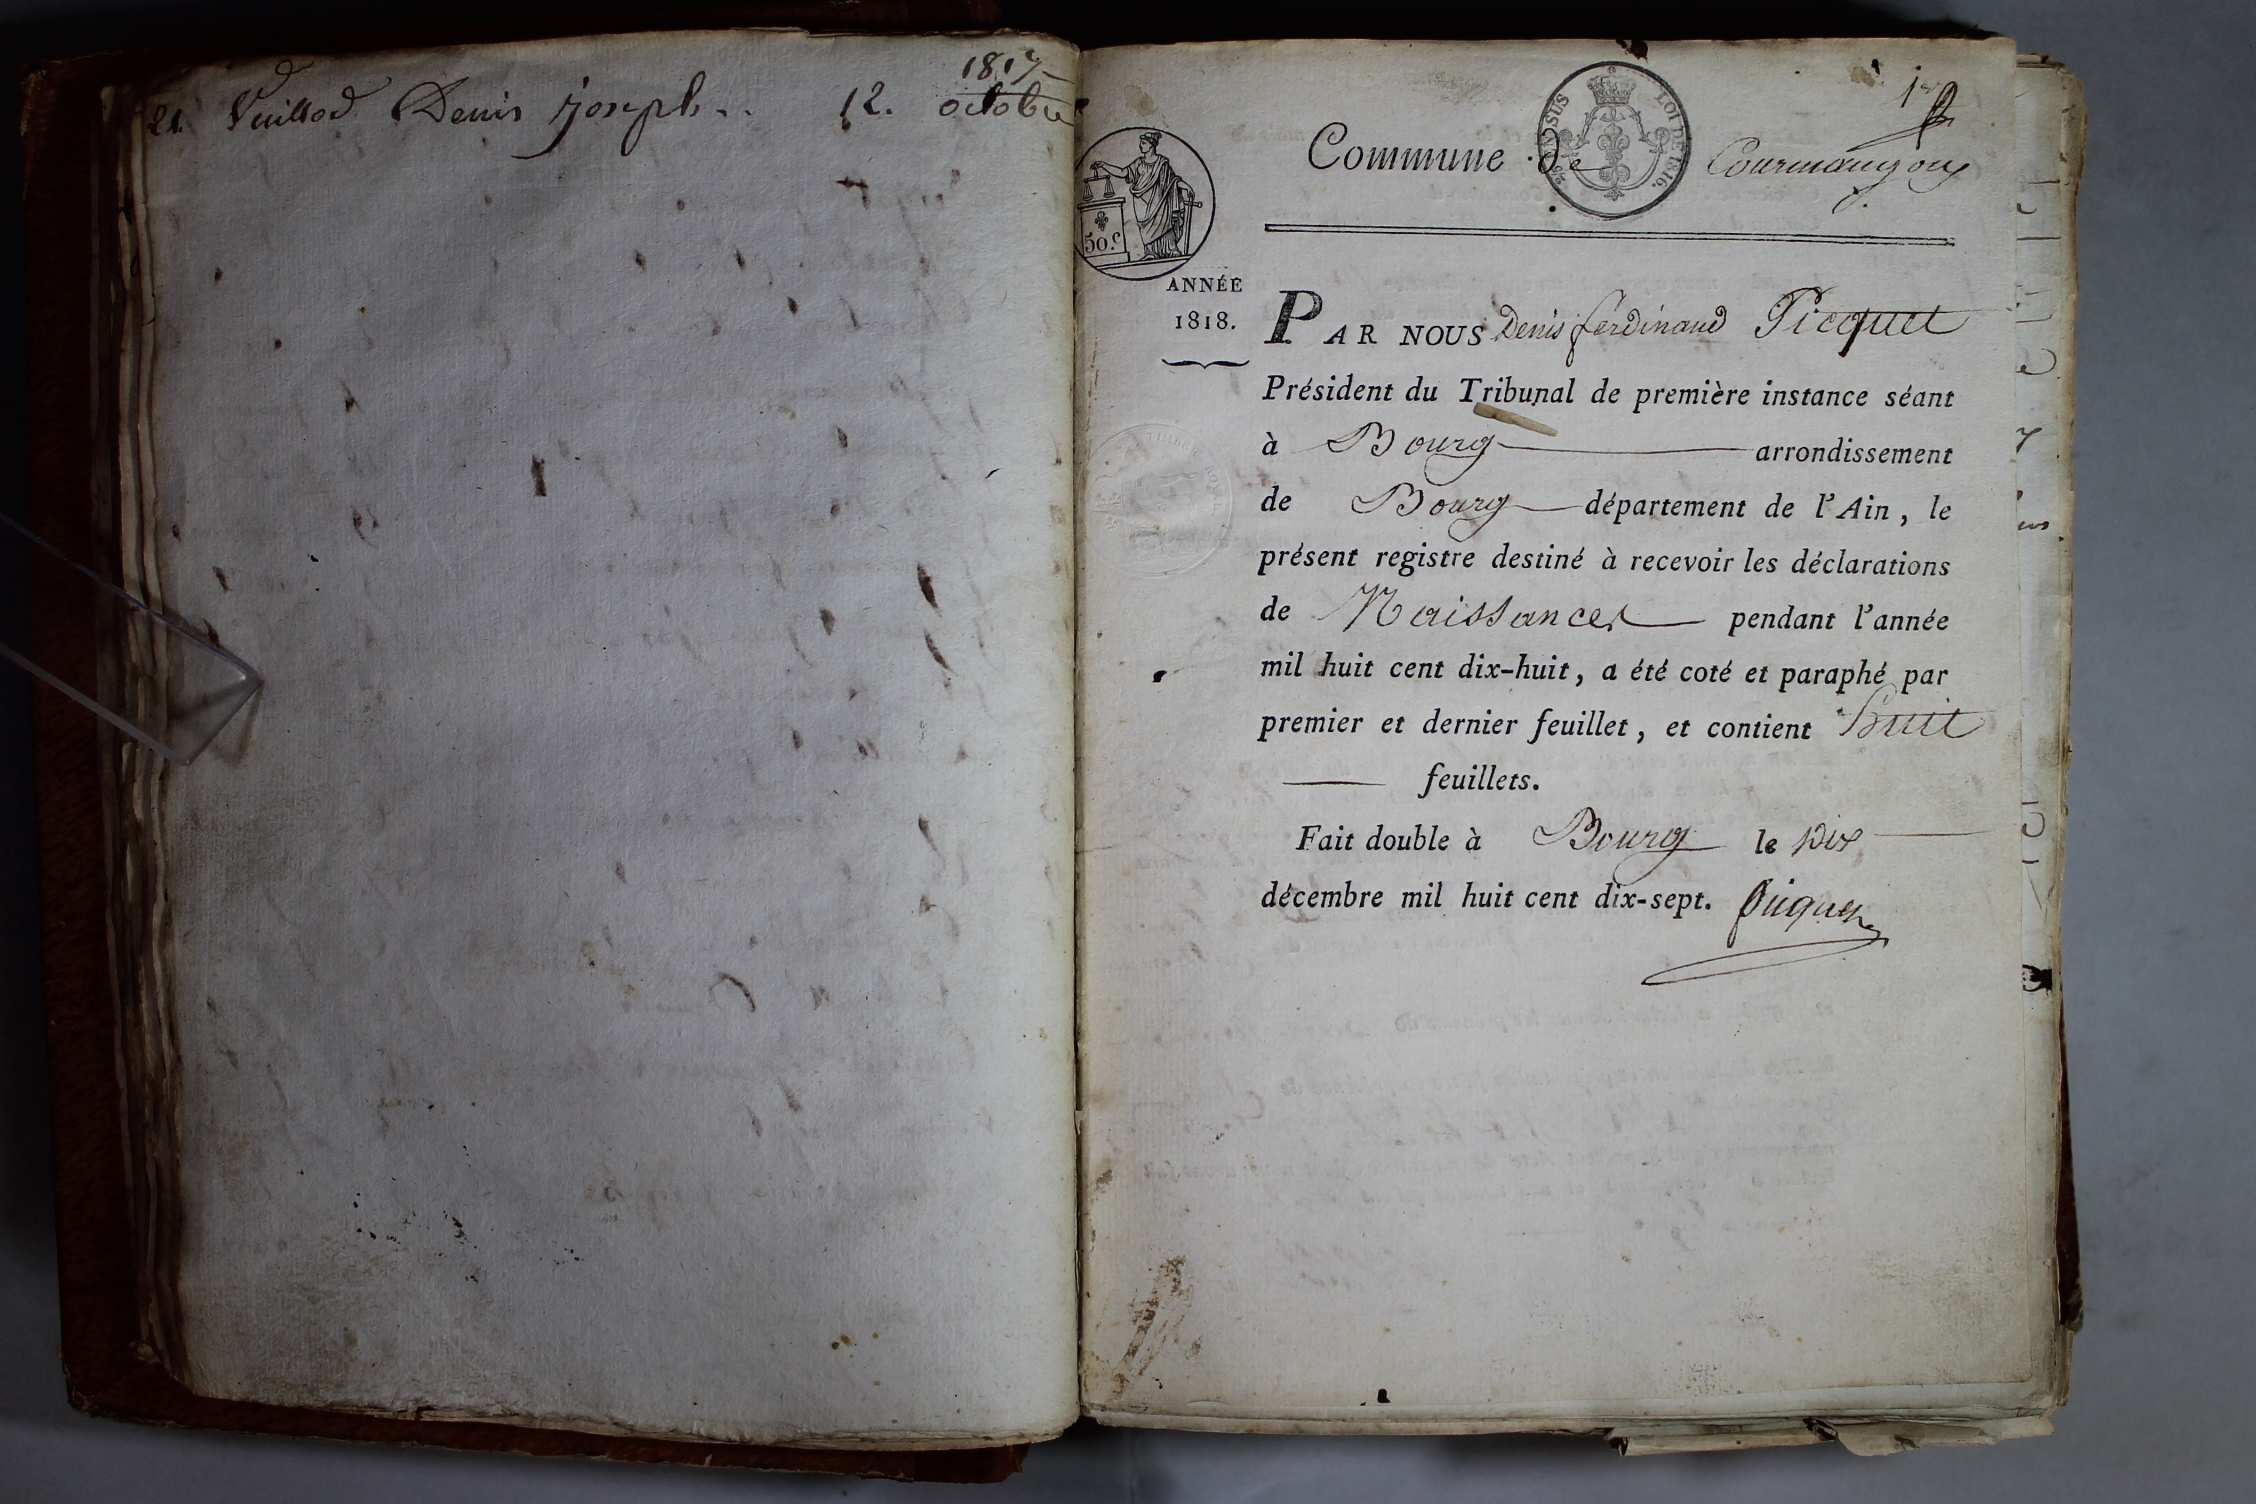 1817
21. Vuillod Denis joseph. . 12. octobre
1er
Commune de Courmangoux
25 EN SUS
LOI DE 1816.
50.c
ANNÉE
1818.
PAR NOUS Denis ferdinand Picquet
Président du Tribunal de première instance séant
à Bourg arrondissement
de Bourg département de l'Ain, le
présent registre destiné à recevoir les déclarations
de Naissances pendant l'année
mil huit cent dix-huit, a été coté et paraphé par
premier et dernier feuillet, et contient huit
feuillets.
Fait double à Bourg le Dix
décembre mil huit cent dix-sept. Picquet